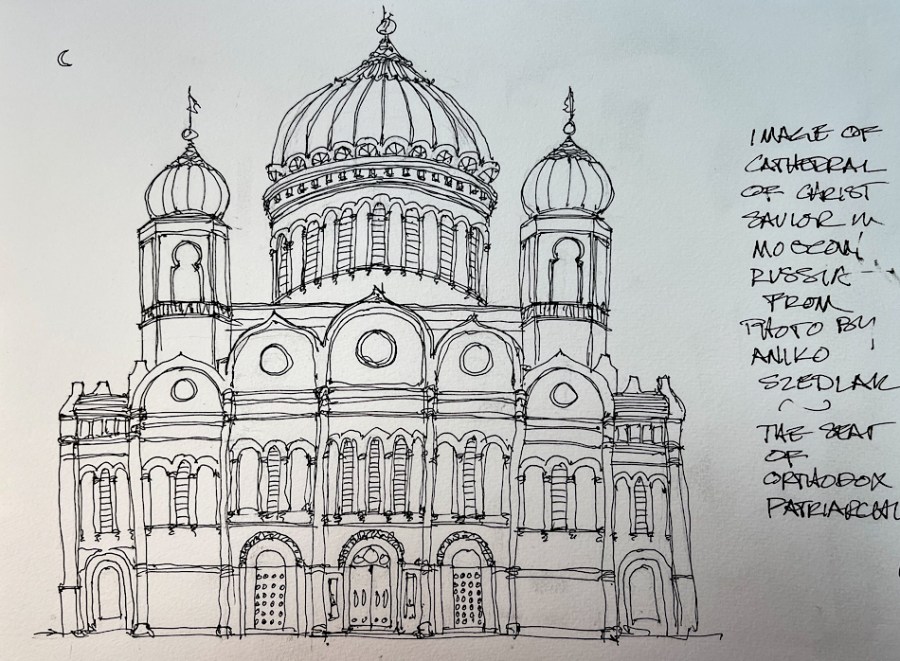 IMAGE OF
CATHEDRAL
OF CHRIST
SAVIOR IN
MOSCOW,
RUSSIA --
FROM
PHOTO BY
ANIKO
SZEDLAK
THE SEAT
OF
ORTHODOX